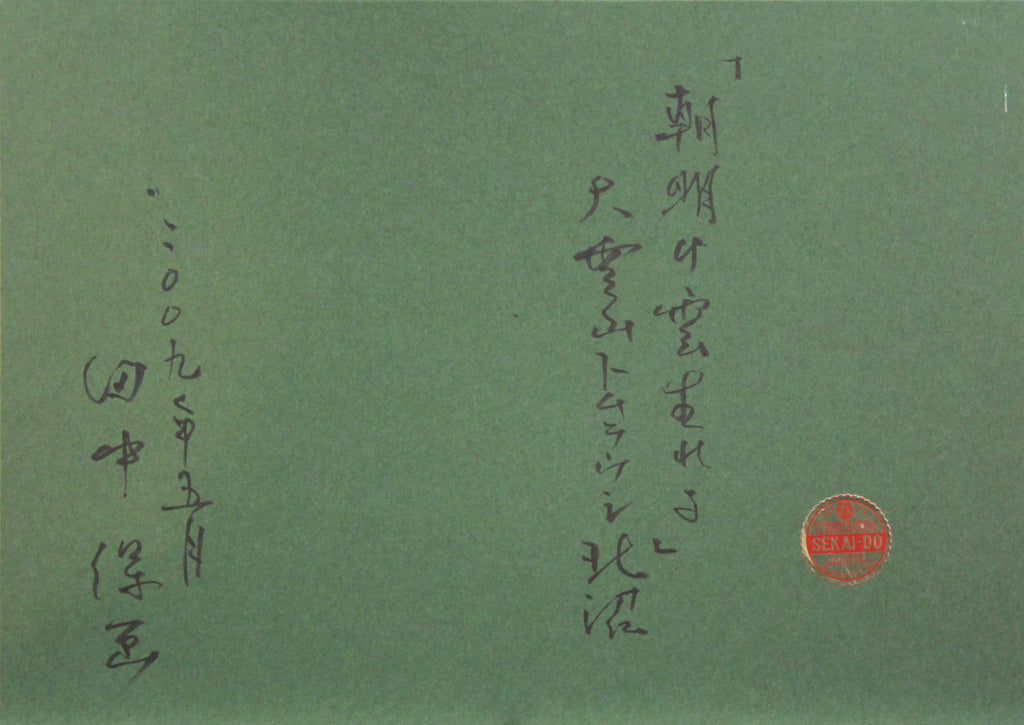 「朝明け雲生れる」
大雪山トムラウシ北沼
二〇〇九年五月
田中保画
SEKAI-DO